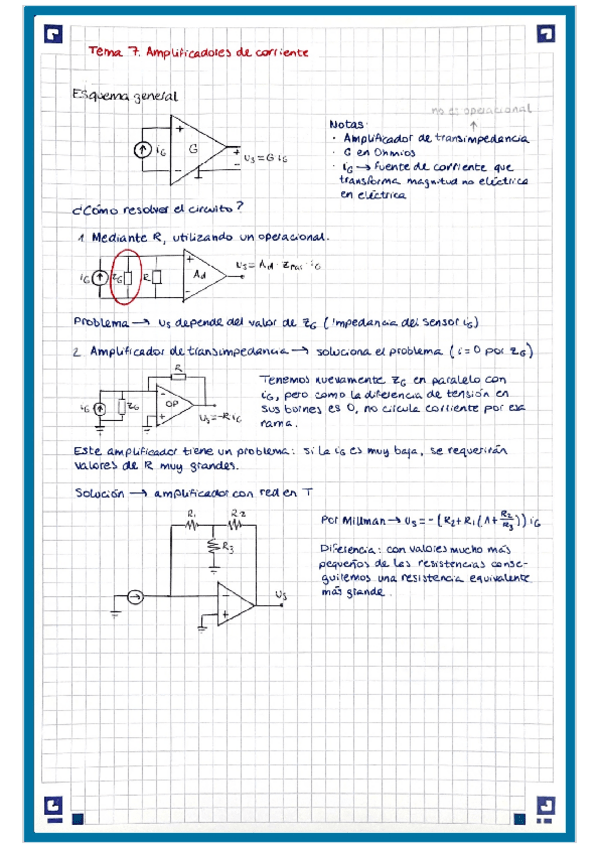 Tema 7. Amplificadores de corriente
Esquema general
no es operacional
Notas:
· Amplificador de transimpedancia
· G en Ohmios
· iG → fuente de corriente que
transforma magnitud no eléctrica
en eléctrica
+
iG
G
-
+
us = G iG
-
¿Cómo resolver el circuito?
1. Mediante R, utilizando un operacional.
iG
ZG
R
+
Ad
-
us = Ad · Zpar · iG
Problema → us depende del valor de ZG (impedancia del sensor iG)
2. Amplificador de transimpedancia → soluciona el problema (i=0 por ZG)
R
iG
ZG
-
OP
+
us = -R iG
Tenemos nuevamente ZG en paralelo con
iG, pero como la diferencia de tensión en
sus bornes es 0, no circula corriente por esa
rama.
Este amplificador tiene un problema: si la iG es muy baja, se requerirán
valores de R muy grandes.
Solución → amplificador con red en T
R1
R2
R3
-
+
us
Por Millman → us = -(R2+R1(1+R2/R3)) iG
Diferencia: con valores mucho más
pequeños de las resistencias conse-
guiremos una resistencia equivalente
más grande.